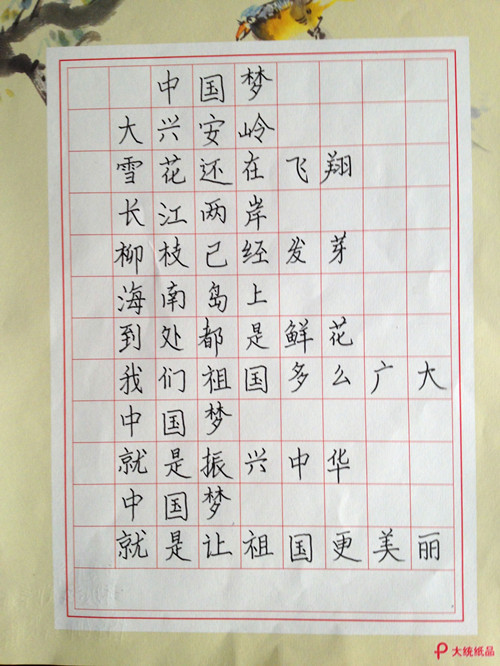 中国梦
大兴安岭
雪花还在飞翔
长江两岸
柳枝已经发芽
海南岛上
到处都是鲜花
我们祖国多么广大
中国梦
就是振兴中华
中国梦
就是让祖国更美丽
大统纸品